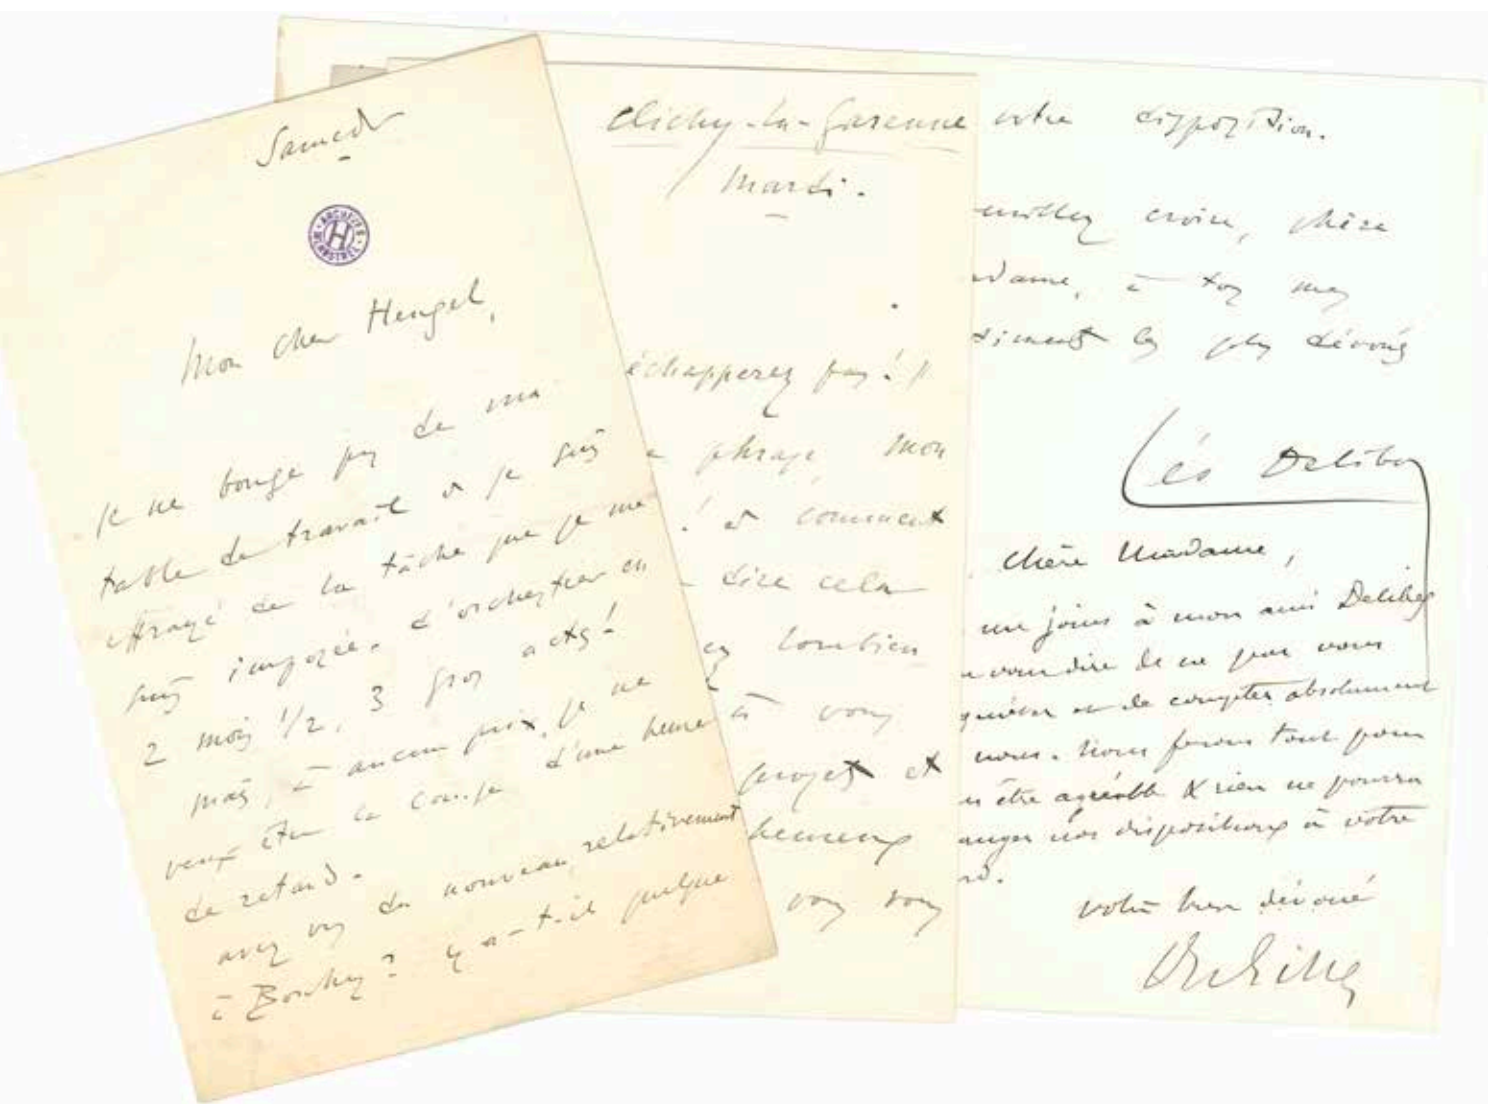 Samedi
ARCHIVES MENESTREL
H
Mon cher Heugel,
Je ne bouge pas de ma
table de travail et je suis
effrayé de la tâche que je me
suis imposée, d'orchestrer en
2 mois 1/2, 3 gros actes!
mais, à aucun prix, je ne
veux être la cause d'une heure
de retard.
avez vous du nouveau relativement
à ? y a-t-il quelque
Clichy-la-Garenne
Mardi.
échapperez pas!!
phrase, Mon
! et comment
dire cela
combien
à vous
projet et
heureux
vous vous
votre disposition.
croire, chère
dame, à tous mes
timents les plus dévoués
Léo Delibes
Chère Madame,
me joins à mon ami Delibes
vous dire de ne pas vous
quiéter et de compter absolument
nous. Nous ferons tout pour
être agréable & rien ne pourra
anger nos dispositions à votre
rd.
votre bien dévoué